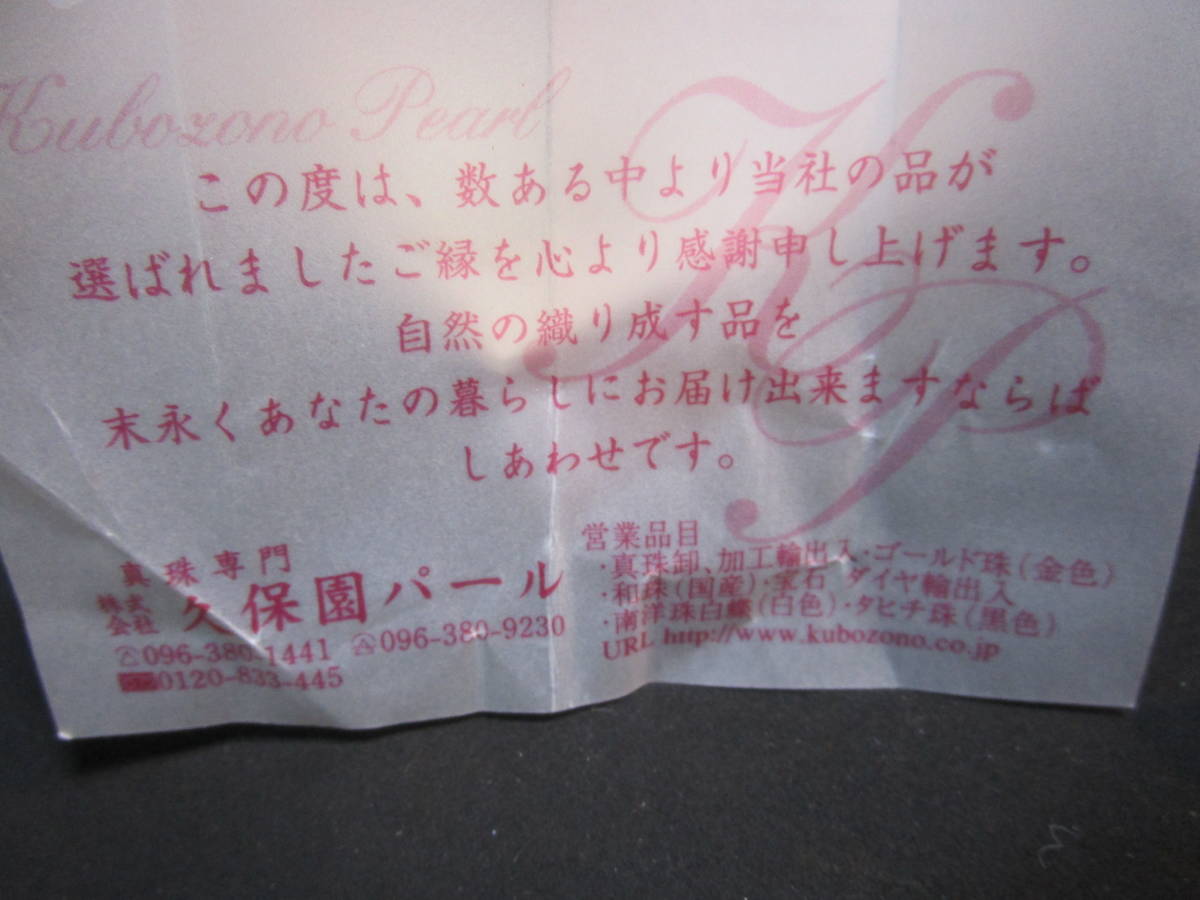 Kubozono Pearl
KP
この度は、数ある中より当社の品が
選ばれましたご縁を心より感謝申し上げます。
自然の織り成す品を
末永くあなたの暮らしにお届け出来ますならば
しあわせです。
真珠専門
株式会社 久保園パール
☏096-380-1441 ㋫096-380-9230
0120-833-445
営業品目
・真珠卸、加工輸出入・ゴールド珠(金色)
・和珠(国産)・宝石 ダイヤ輸出入
・南洋珠白蝶(白色)・タヒチ珠(黒色)
URL http://www.kubozono.co.jp